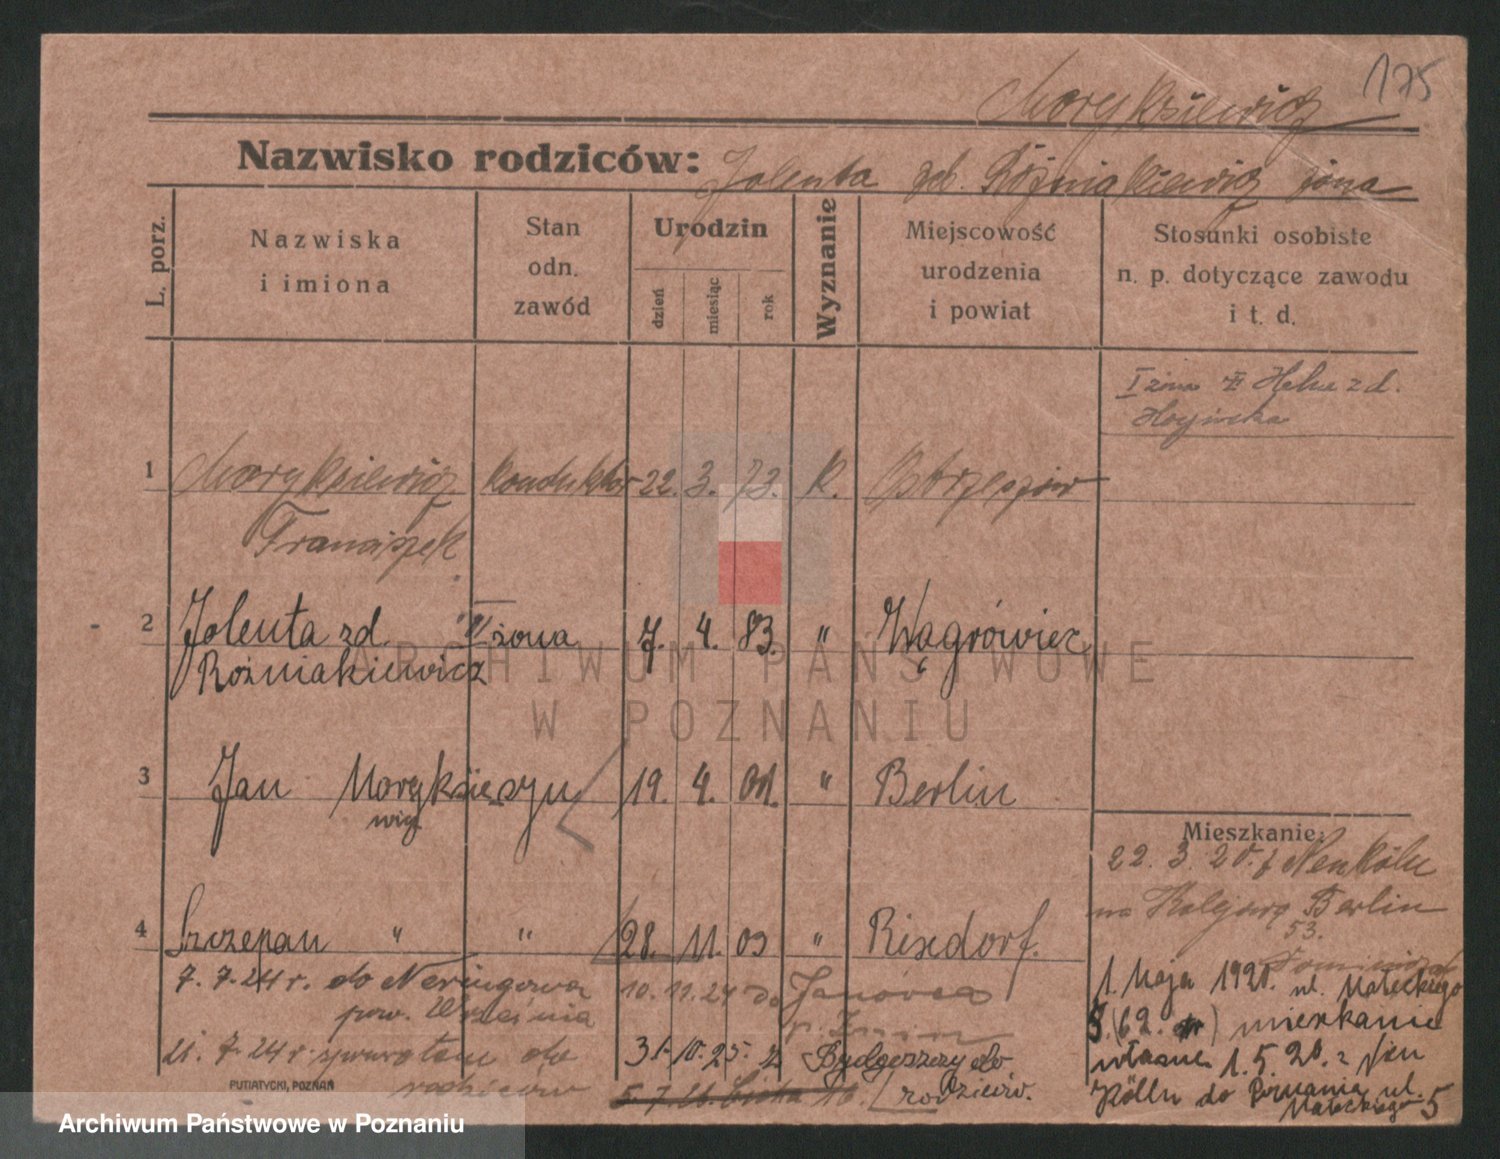 175
Maryksiewicz
Nazwisko rodziców: Jolenta geb. Różniakiewicz żona
L. porz.
Nazwiska i imiona
Stan odn. zawód
Urodzin
dzień miesiąc rok
Wyznanie
Miejscowość urodzenia i powiat
Stosunki osobiste n. p. dotyczące zawodu i t. d.
I żona zd.
1 Maryksiewicz konduktor 22. 3. 73. k. Ostrzeszów
Franciszek
2 Jolenta zd. II żona 7. 4. 83. " Wągrówiec
Rożniakiewicz
3 Jan Maryksie syn 19. 4. 01. " Berlin
wicz
4 Szczepan " " 28. 11. 03 " Rixdorf.
7. 7. 24 r. do
pow. Września
21. 7. 24 r. spowrotem do
rodziców
10. 11. 24 do Janówca
p. Żnin
31. 10. 25. z Bydgoszczy do
rodziców.
5. 7. 26.
Mieszkanie:
22. 3. 20. z Neukölln
Berlin
53.
1. Maja 1920. ul. Małeckiego
5 (62. ) mieszkanie
własne 1. 5. 20. z Neu
Kölln do Poznania ul.
Małeckiego 5
PUTIATYCKI, POZNAŃ
ARCHIWUM PAŃSTWOWE
W POZNANIU
Archiwum Państwowe w Poznaniu